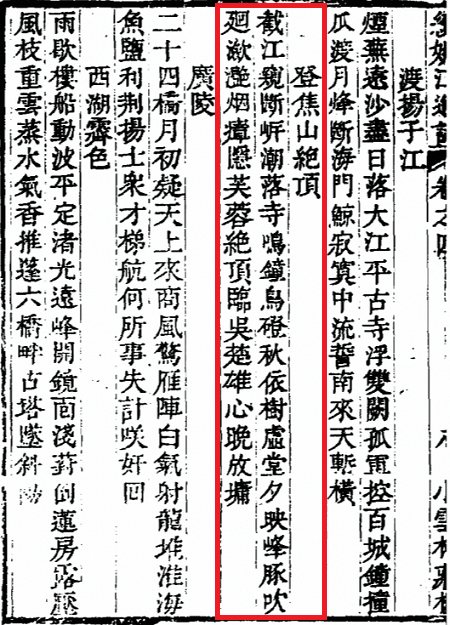 姚江逸詩卷之四
渡揚子江
煙蕪遠沙盡日落大江平古寺浮雙闕孤軍控百城鐘撞
瓜渡月烽斷海門鯨寂寞中流誓南來天塹橫
登焦山絕頂
截江窺斷岍潮落寺鳴鐘鳥磴秋依樹虛堂夕映峰豚吹
廻漵灔烟瘴隱芙蓉絕頂臨吳楚雄心晚放慵
廣陵
二十四橋月初疑天上來商風驚雁陣白氣射龍堆淮海
魚鹽利荆揚士衆才梯航何所事失計咲好回
西湖霽色
雨歇樓船動波平定渚光遠峰開鏡面淺葑倒蓮房露壓
風枝重雲蒸水氣香推篷六橋畔古塔墜斜